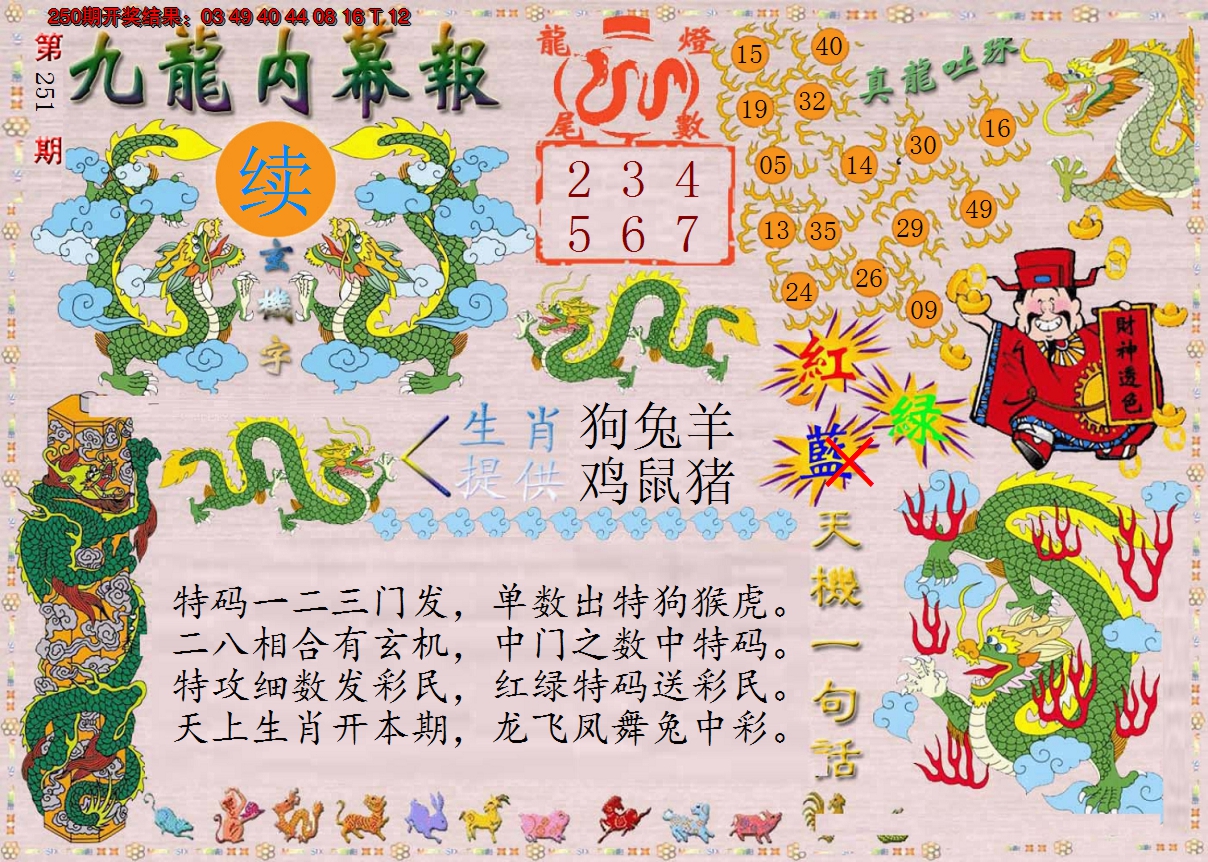 250期开奖结果：03 49 40 44 08 16 T 12
第251期
九龍内幕報
续
玄機字
龍燈
尾數
2 3 4
5 6 7
真龍吐珠
15
40
19
32
30
16
05
14
13
35
29
49
24
26
09
財神透色
紅
绿
藍
生肖
提供
狗兔羊
鸡鼠猪
天機一句话
特码一二三门发，单数出特狗猴虎。
二八相合有玄机，中门之数中特码。
特攻细数发彩民，红绿特码送彩民。
天上生肖开本期，龙飞凤舞兔中彩。